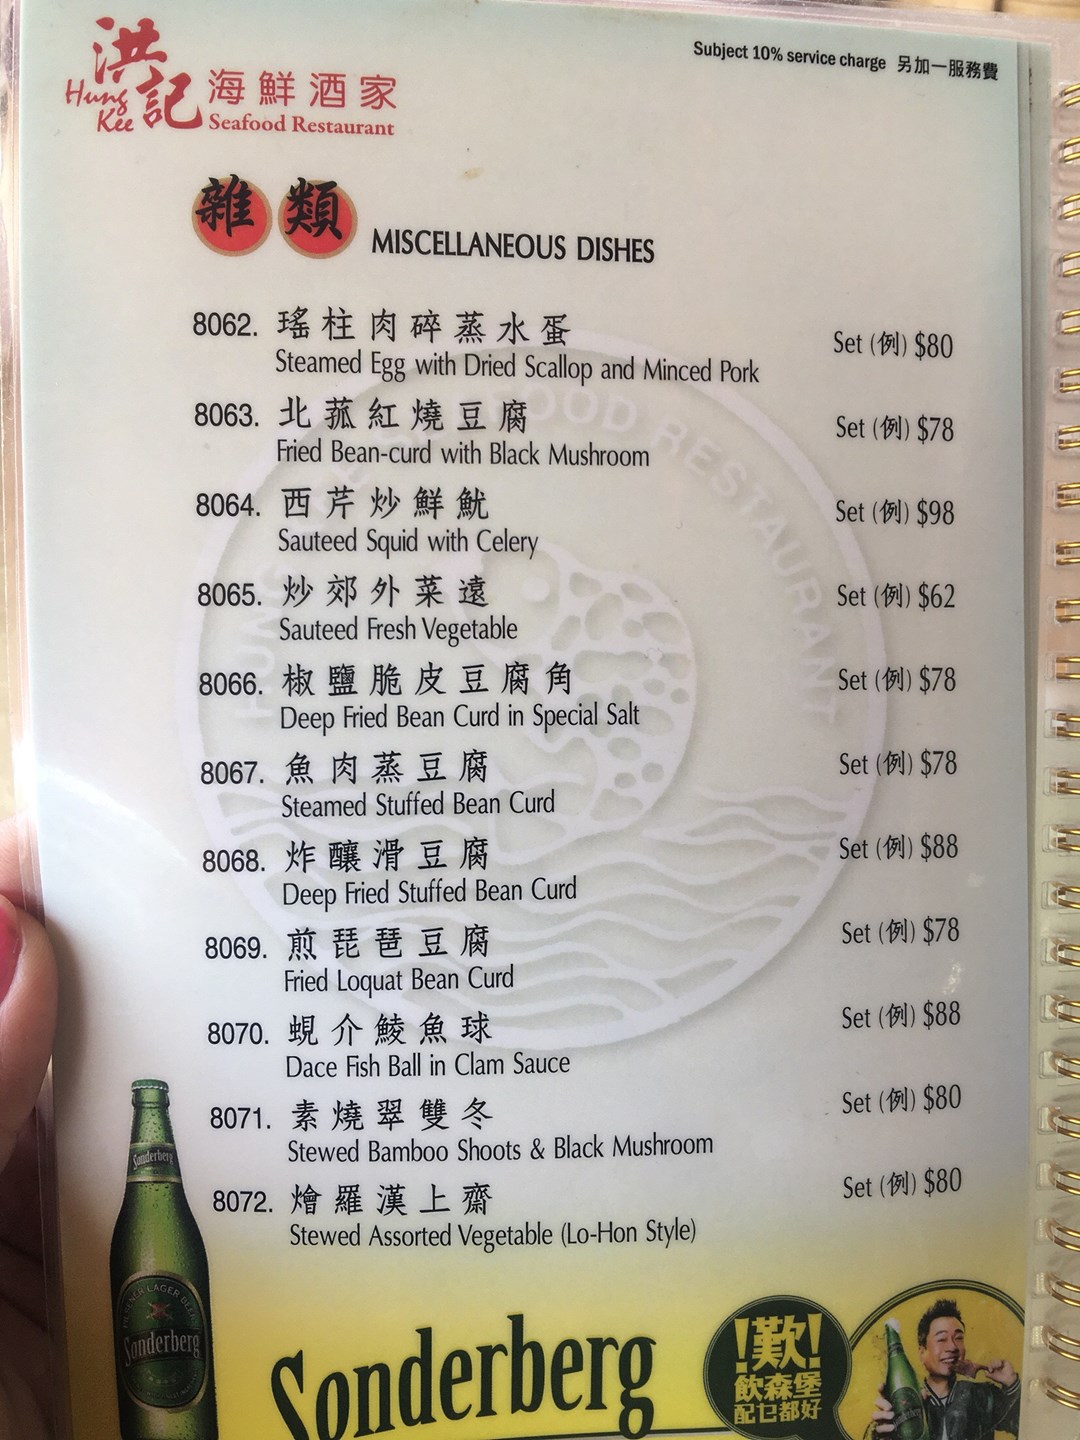 洪記
Hung Kee
海鮮酒家
Seafood Restaurant
Subject 10% service charge 另加一服務費
雜類 MISCELLANEOUS DISHES
8062. 瑤柱肉碎蒸水蛋 Set (例) $80
Steamed Egg with Dried Scallop and Minced Pork
8063. 北菰紅燒豆腐 Set (例) $78
Fried Bean-curd with Black Mushroom
8064. 西芹炒鮮魷 Set (例) $98
Sauteed Squid with Celery
8065. 炒郊外菜遠 Set (例) $62
Sauteed Fresh Vegetable
8066. 椒鹽脆皮豆腐角 Set (例) $78
Deep Fried Bean Curd in Special Salt
8067. 魚肉蒸豆腐 Set (例) $78
Steamed Stuffed Bean Curd
8068. 炸釀滑豆腐 Set (例) $88
Deep Fried Stuffed Bean Curd
8069. 煎琵琶豆腐 Set (例) $78
Fried Loquat Bean Curd
8070. 蜆介鯪魚球 Set (例) $88
Dace Fish Ball in Clam Sauce
8071. 素燒翠雙冬 Set (例) $80
Stewed Bamboo Shoots & Black Mushroom
8072. 燴羅漢上齋 Set (例) $80
Stewed Assorted Vegetable (Lo-Hon Style)
Sonderberg
PILSENER LAGER BEER
Sonderberg
Sonderberg
!歎!
飲森堡
配乜都好